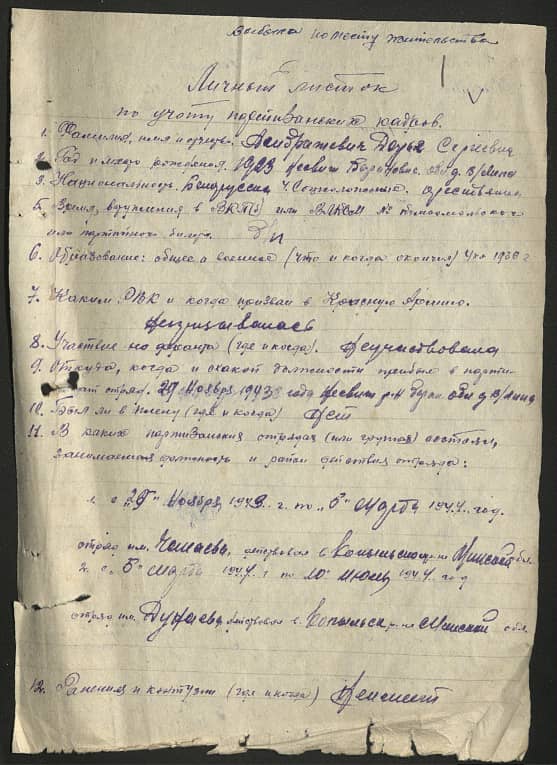 выбыла по месту жительства
Личный листок
по учёту партизанских кадров.
1. Фамилия, имя и отчество. Сергеевна
2. Год и место рождения. 1923 Несвиж Баранович. обл. д.
3. Национальность. Белоруска 4. Соцположение. крестьянка
5. Время вступления в ВКП(б) или ВЛКСМ № комсомольского
или партийного билета. Б/п
6. Образование: общее и военное (что и когда окончил) 4 кл 1936 г
7. Каким РВК и когда призван в Красную Армию.
Непризывалась
8. Участие на фронтах (где и когда). Неучаствовала
9. Откуда, когда и с какой должности прибыл в парти-
занский отряд. 29 Ноября 1943 года Несвиж р-н Баран. обл д.
10. Был ли в плену (где и когда) Нет
11. В каких партизанских отрядах (или группах) состоял,
занимаемая должность и район действия отряда:
1. с 29" Ноября 1943 г. по "5" марта 1944. год.
отряд им. Чапаева, действовал в Копыльском р-не Минской обл.
2. с "5" марта 1944 г по 10" июля 1944. год
отряд им. Дунаева действовал в Копыльск. р-не Минской обл.
12. Ранения и контузии (где и когда) Неимеет